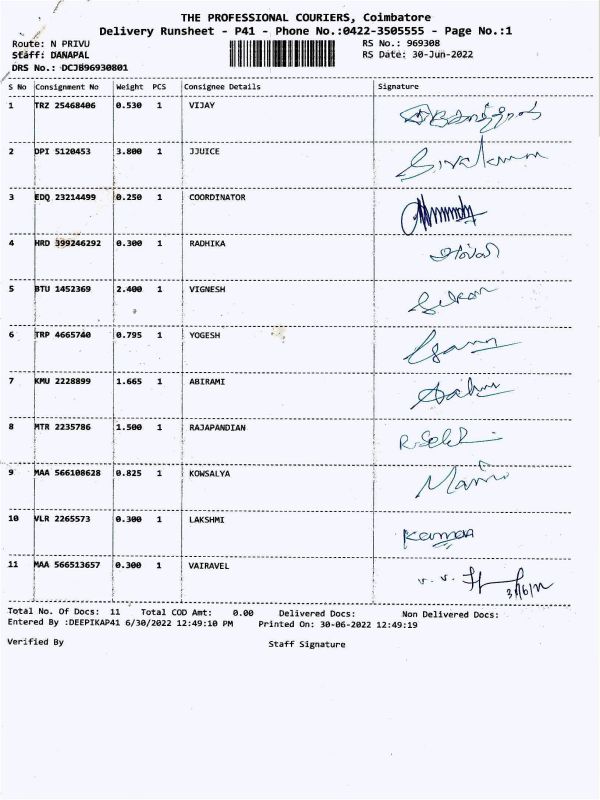 THE PROFESSIONAL COURIERS, Coimbatore
Delivery Runsheet - P41 - Phone No.:0422-3505555 - Page No.:1
Route: N PRIVU RS No.: 969308
Staff: DANAPAL RS Date: 30-Jun-2022
DRS No.: DCJB96930801
S No Consignment No Weight PCS Consignee Details Signature
1 TRZ 25468406 0.530 1 VIJAY
2 DPI 5120453 3.800 1 JJUICE Sivakumar
3 EDQ 23214499 0.250 1 COORDINATOR
4 HRD 399246292 0.300 1 RADHIKA
5 BTU 1452369 2.400 1 VIGNESH
6 TRP 4665740 0.795 1 YOGESH
7 KMU 2228899 1.665 1 ABIRAMI
8 MTR 2235786 1.500 1 RAJAPANDIAN
9 MAA 566108628 0.825 1 KOWSALYA
10 VLR 2265573 0.300 1 LAKSHMI
11 MAA 566513657 0.300 1 VAIRAVEL V. V.
Total No. Of Docs: 11 Total COD Amt: 0.00 Delivered Docs: Non Delivered Docs:
Entered By :DEEPIKAP41 6/30/2022 12:49:10 PM Printed On: 30-06-2022 12:49:19
Verified By Staff Signature